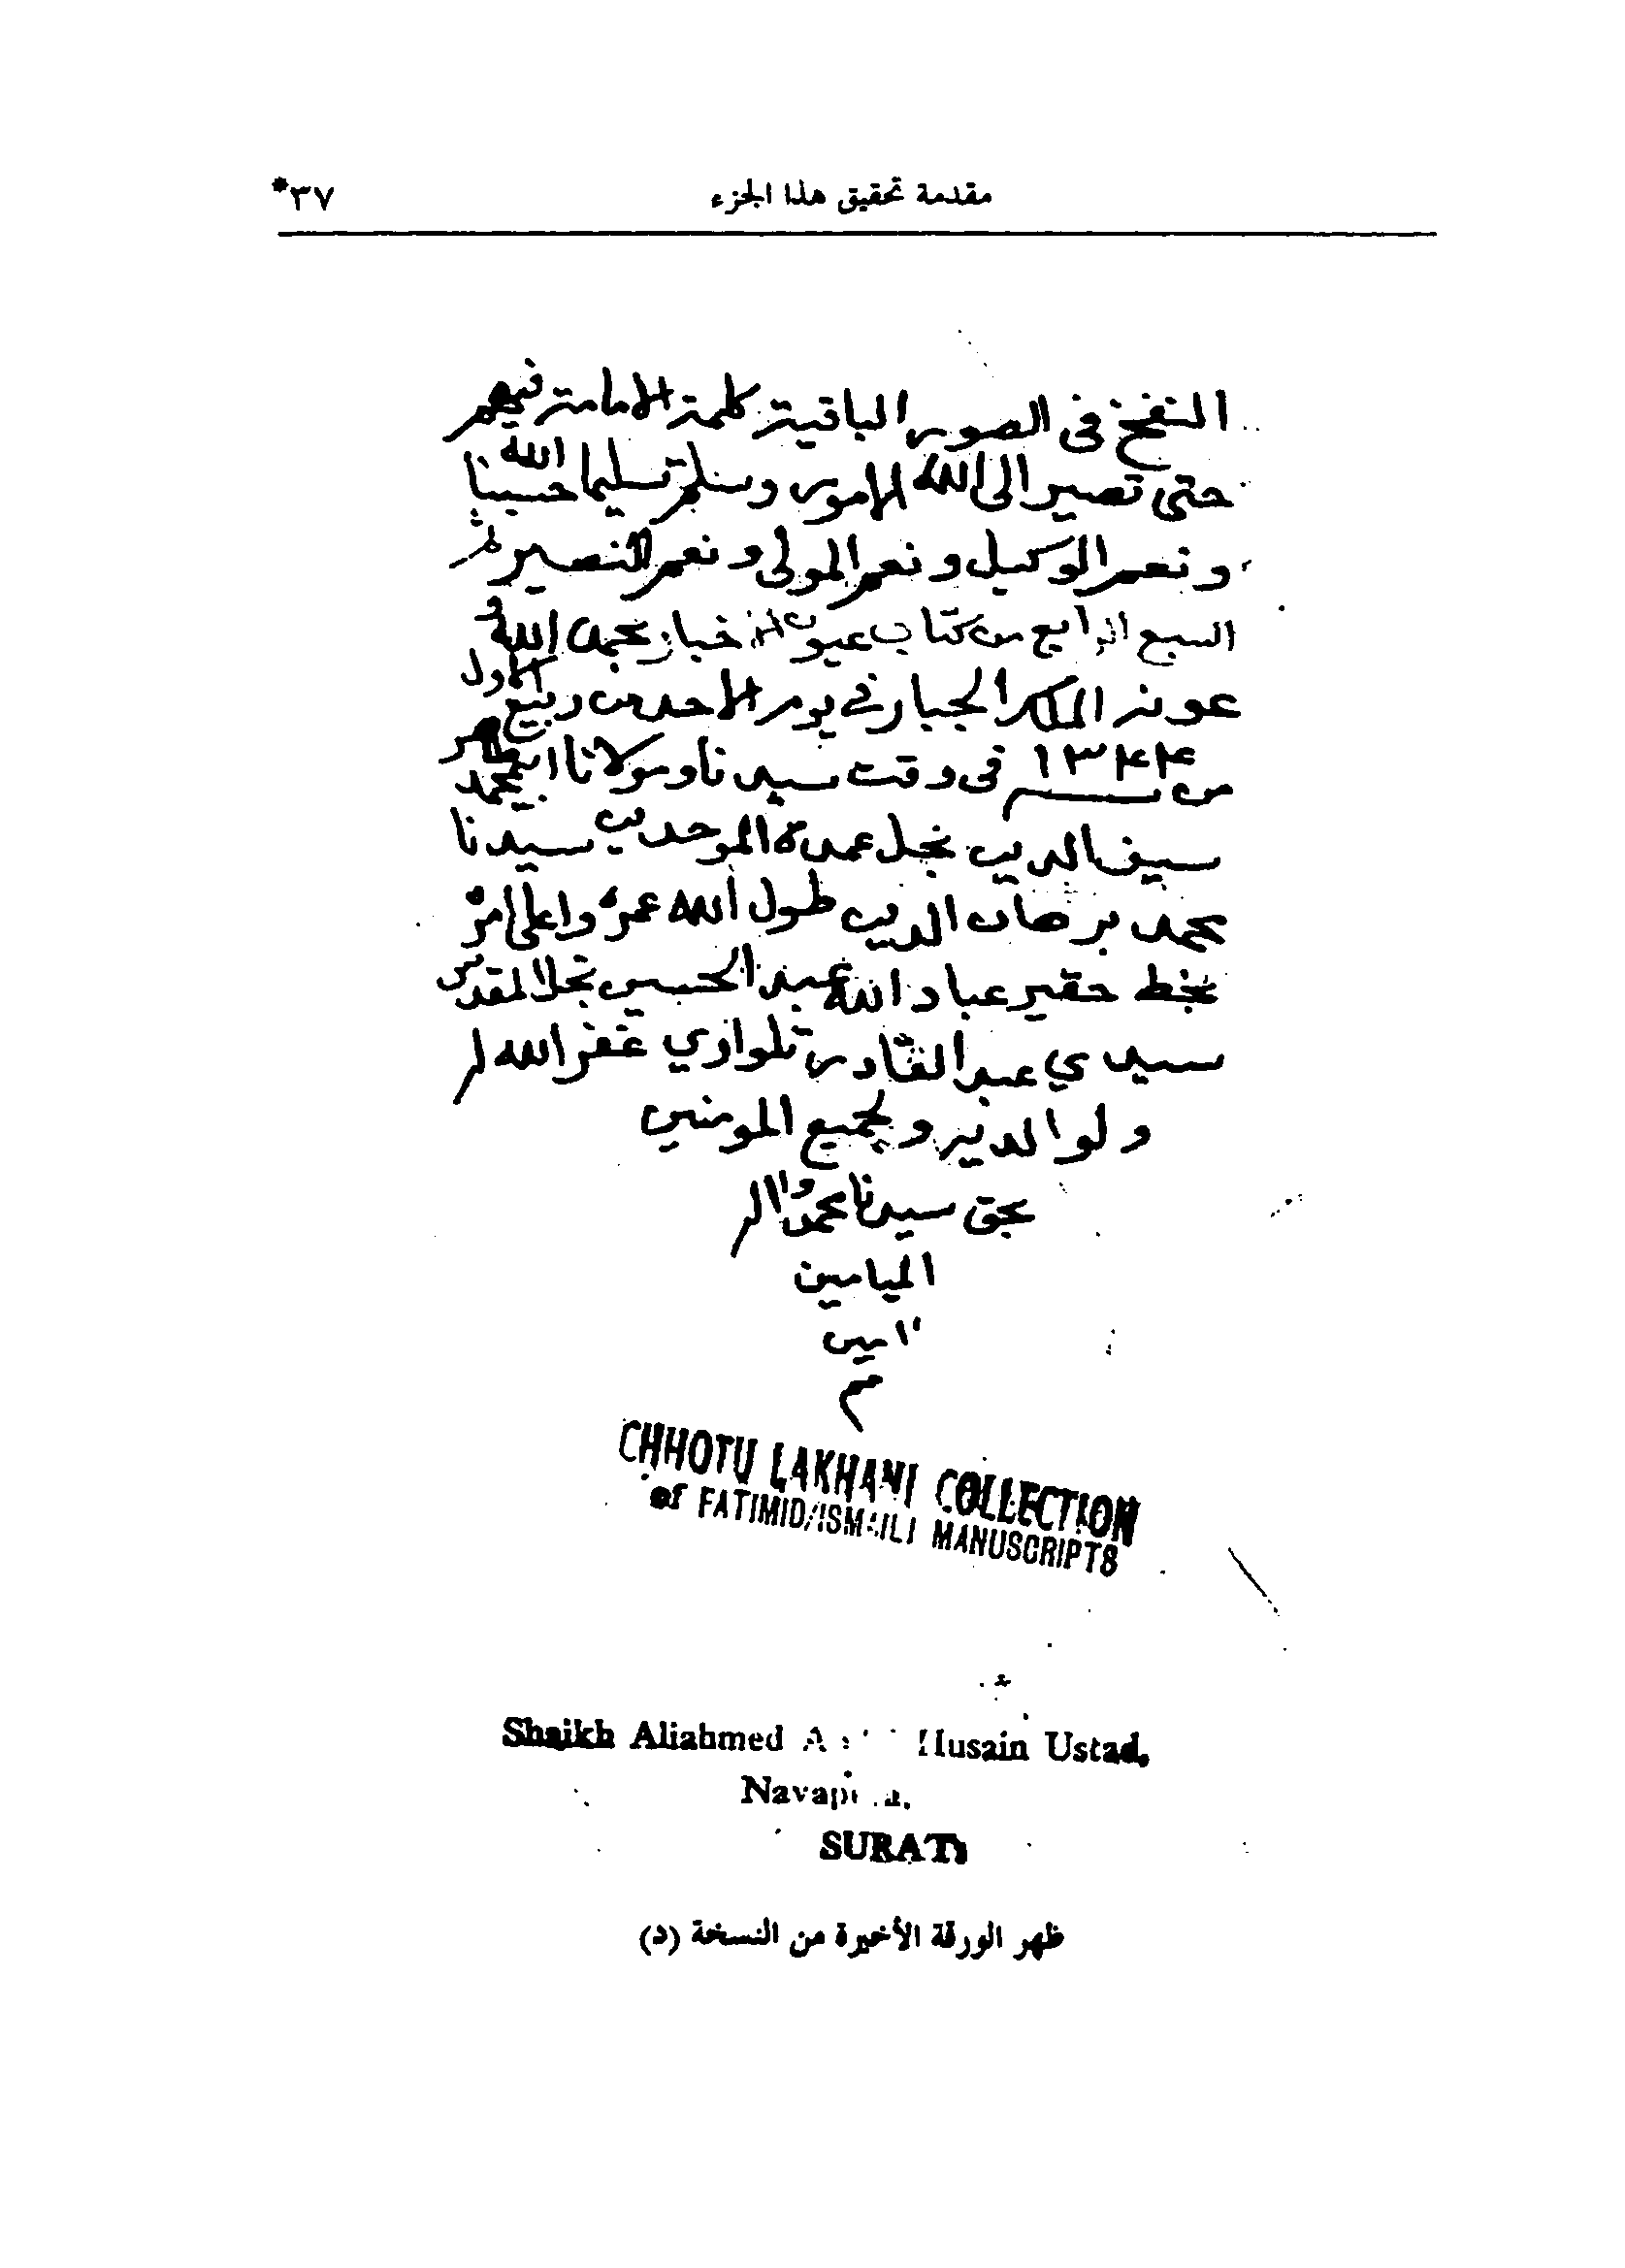 مقدمة تحقيق هذا الجزء ٣٧*
النفخ فى الصور الباقية كلمة الامامة فيهم
حتى تصير الى الله الامور وسلم تسليما حسبنا الله
ونعم الوكيل ونعم المولى ونعم النصير تم
السبع الرابع من كتاب عيون الاخبار بحمد الله و
عونه الملك الجبار في يوم الاحد من ربيع الاول
من سنه ١٣٤٤ فى وقت سيدنا ومولانا ابيمحمد طاهر
سيف الدين نجل عمدة الموحدين سيدنا
محمد برهان الدين طول الله عمره واعلى امره
بخط حقير عباد الله عبد الحسين نجل المقدس
سيدي عبد القادر تلواوي غفر الله له
ولوالديه ولجميع المومنين
بحق سيدنا محمد واله
الميامين
امين
م
CHHOTU LAKHANI COLLECTION
of FATIMID/ISMAILI MANUSCRIPTS
Shaikh Aliahmed Husain Ustad,
SURAT
ظهر الورقة الأخيرة من النسخة (د)